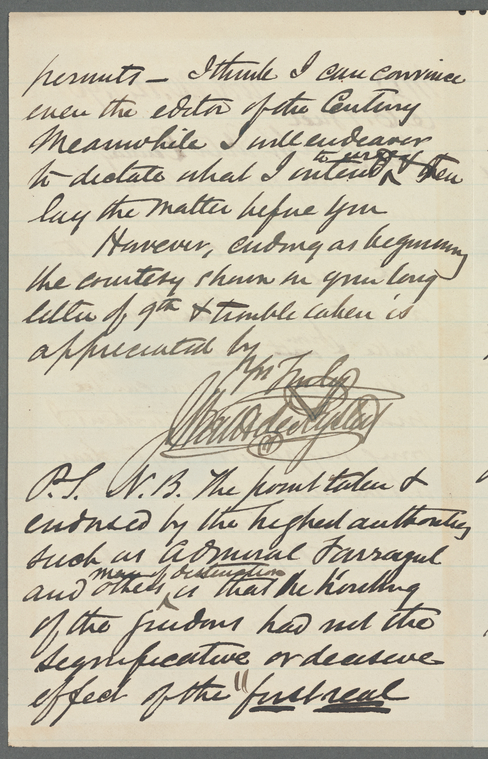 permits – I think I can convince
even the editor of the Century
Meanwhile I will endeavor
to dictate what I intend to urge & then
lay the matter before you
However, ending as beginning
the courtesy shown in your long
letter of 9th & trouble taken is
appreciated by
Yrs Truly
P.S. N.B. The point taken &
endorsed by the highest authorities
such as Admiral Farragut
and others men of distinction is that the hoisting
of the guidons had not the
significative or decisive
effect of the "first real